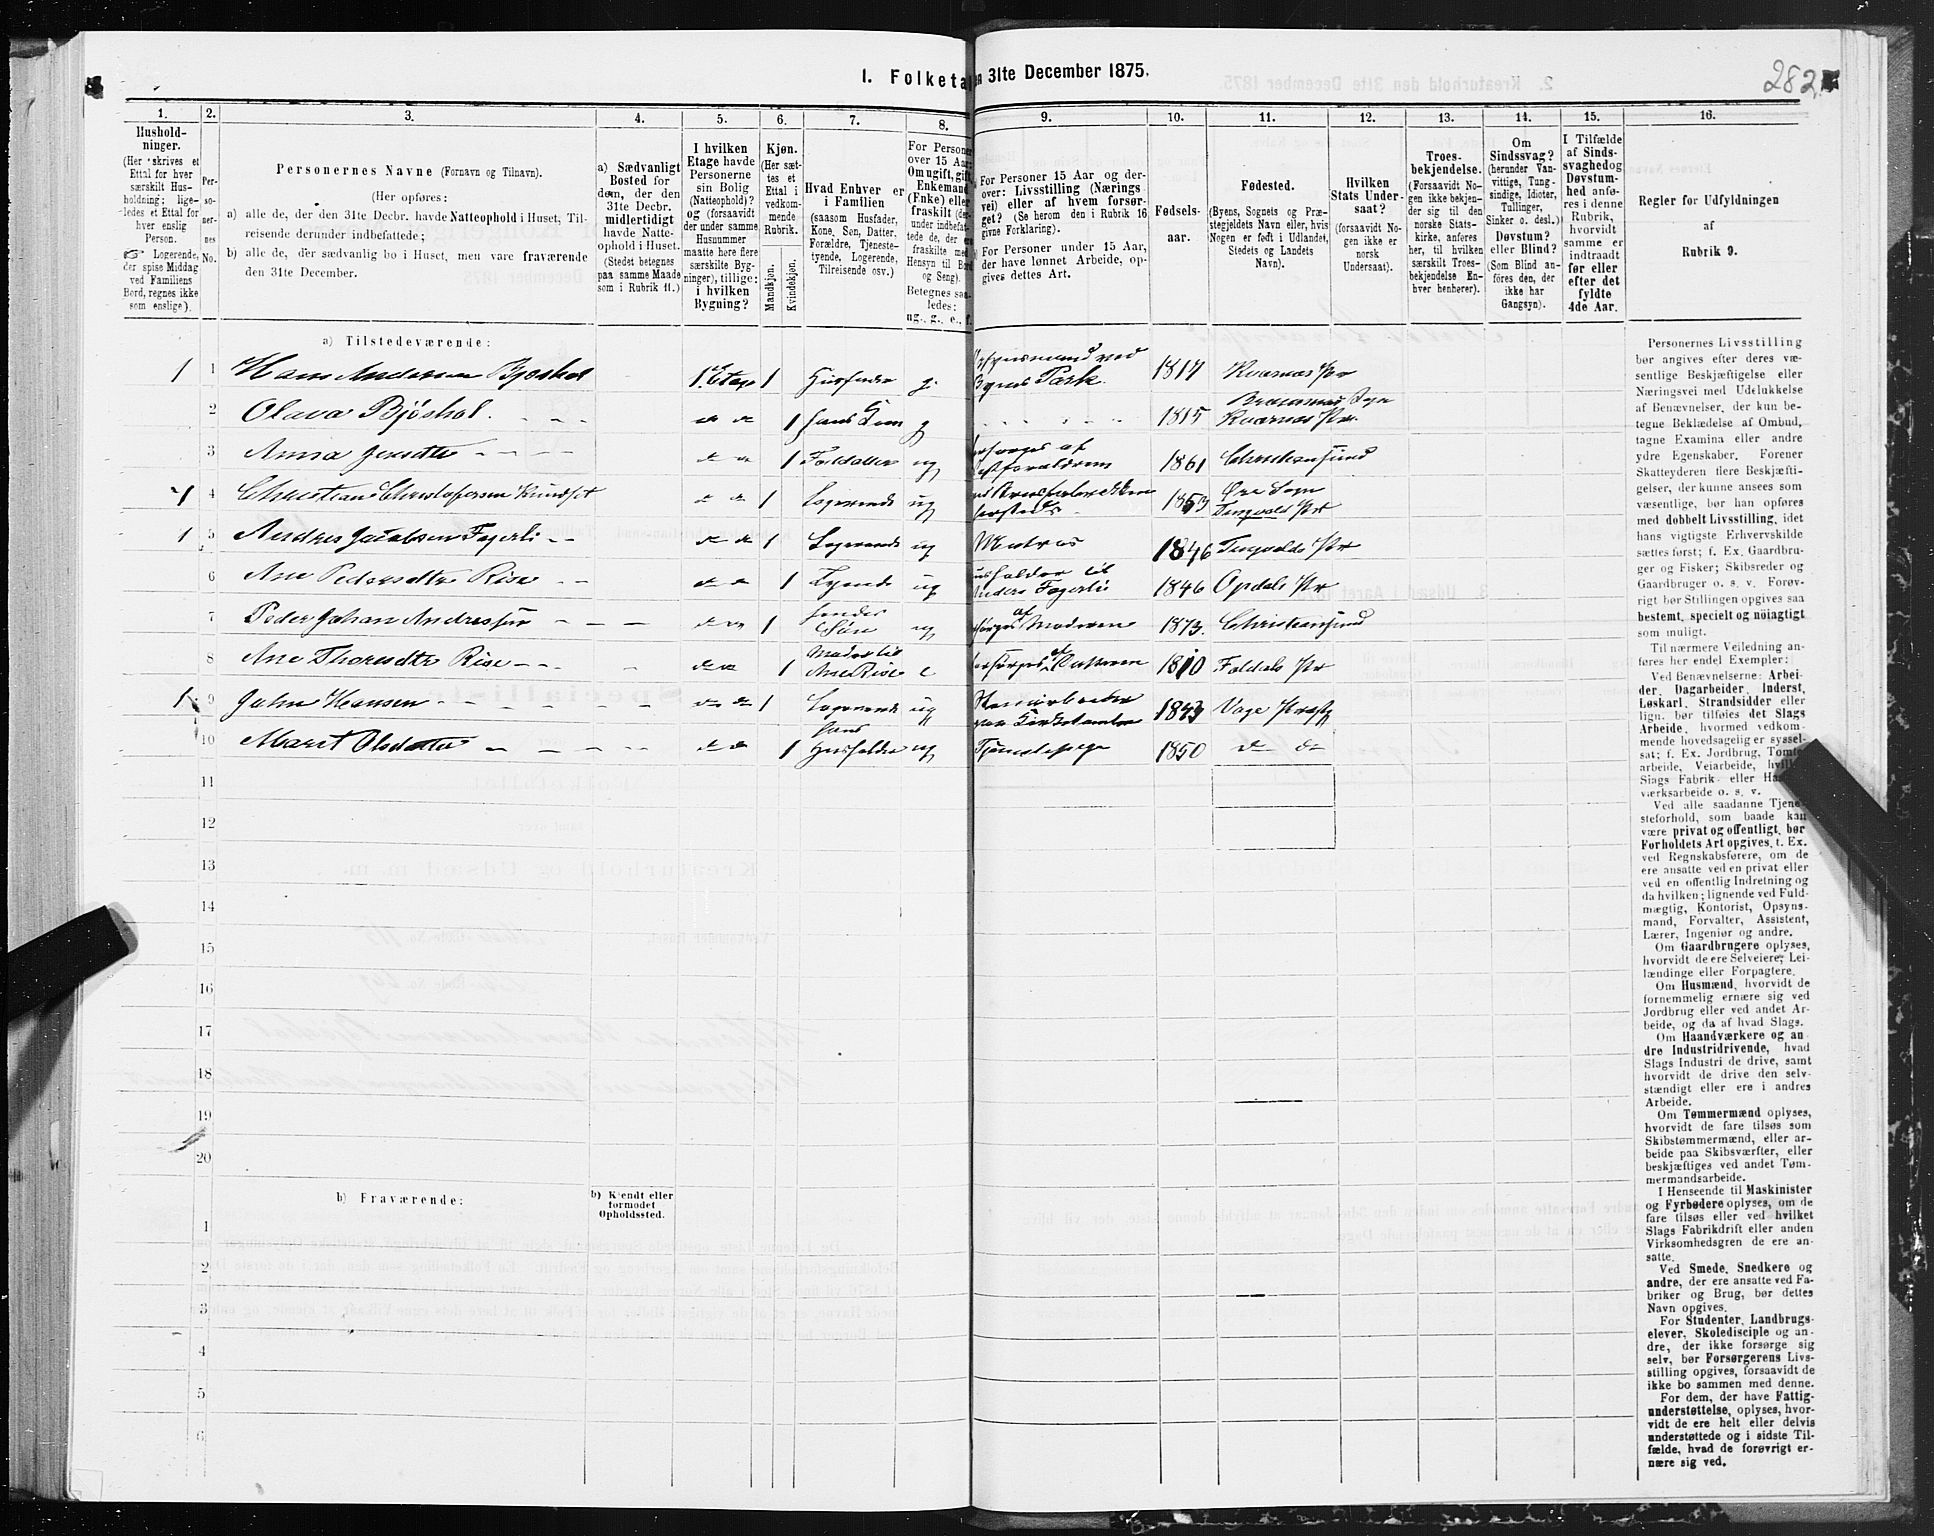 282
I. Folketal den 31te December 1875.
1.
2.
3.
4.
5.
6.
7.
8.
9.
10.
11.
12.
13.
14.
15.
16.
Hushold-
ninger.
(Her skrives et
Ettal for hver
særskilt Hus-
holdning; lige-
ledes et Ettal for
hver enslig
Person.
☞ Logerende,
der spise Middag
ved Familiens
Bord, regnes ikke
som enslige).
Per-
so-
ner-
nes
No.
Personernes Navne (Fornavn og Tilnavn).
(Her opføres:
a) alle de, der den 31te Decbr. havde Natteophold i Huset, Til-
reisende derunder indbefattede;
b) alle de, der sædvanlig bo i Huset, men vare fraværende
den 31te December.
a) Sædvanligt
Bosted for
dem, der den
31te Decbr.
midlertidigt
havde Natte-
ophold i Huset.
(Stedet betegnes
paa samme Maade
som i Rubrik 11.)
I hvilken
Etage havde
Personerne
sin Bolig
(Natteophold)?
og (forsaavidt
der under samme
Husnummer
maatte høre flere
særskilte Byg-
ninger), tillige:
i hvilken
Bygning?
Kjøn.
(Her sæt-
tes et
Ettal i
vedkom-
mende
Rubrik.
Mandkjøn.
Kvindekjøn.
Hvad Enhver er
i Familien
(saasom Husfader,
Kone, Søn, Datter,
Forældre, Tjeneste-
tyende, Logerende,
Tilreisende osv.)
For Personer
over 15 Aar:
Om ugift, gift,
Enkemand
(Enke) eller
fraskilt (der-
under indbefat-
tede de, der ere
fraskilte med
Hensyn til Bord
og Seng).
Betegnes saa-
ledes:
ug., g., e., f.
For Personer 15 Aar og der-
over: Livsstilling (Nærings-
vei) eller af hvem forsør-
get? (Se herom den i Rubrik 16
givne Forklaring).
For Personer under 15 Aar,
der have lønnet Arbeide, op-
gives dettes Art.
Fødsels-
aar.
Fødested.
(Byens, Sognets og Præ-
stegjeldets Navn eller, hvis
Nogen er født i Udlandet,
Stedets og Landets
Navn).
Hvilken
Stats Under-
saat?
(forsaavidt No-
gen ikke er
norsk
Undersaat).
Troes-
bekjendelse.
(Forsaavidt No-
gen ikke bekjen-
der sig til den
norske Stats-
kirke, anføres
her, til hvilken
særskilt Troes-
bekjendelse En-
hver henhører).
Om
Sindssvag?
(herunder Van-
vittige, Tung-
sindige, Idioter,
Tullinger,
Sinker o. desl.)
Døvstum?
eller Blind?
(Som Blind an-
føres den, der
ikke har
Gangsyn).
I Tilfælde
af Sinds-
svaghed og
Døvstum-
hed anfø-
res i denne
Rubrik,
hvorvidt
samme er
indtraadt
før eller
efter det
fyldte
4de Aar.
Regler for Udfyldningen
af
Rubrik 9.
a) Tilstedeværende:
1 1 Hans Andersen Bjøshol 1ste Etage 1 Husfader g. Opsynsmand ved Byens Park. 1817 Kværnæs Pr
2 Olava Bjøshol. - - - do do 1 hans Kone g 1815 Bremsnæs Sogn Kværnæs Pr.
3 Anna - - - do do 1 ug forsørges af 1861 Christiansund
1 4 Christian Christofersen do do 1 Logerende ug 1853 Øre Sogn Tingvold Pr
1 5 Andres Jacobsen Fagerli - - do do 1 Logerende ug Matros 1846 Tingvolds Pr
6 Ane Pedersdtr Rise - - do do 1 Tyende ug Husholder til Anders Fagerli 1846 Opdals Pr
7 Peder Johan Andressen - - - do do 1 hendes Søn ug forsørges af Moderen 1873. Christiansund
8 Ane Thoresdtr Rise - - - do do 1 Moder til Ane Rise e forsørges af Datteren 1810 Foldals Pr
1 9 John Hansen - - - - - - do do 1 Logerende ug 1843 Vage Præstg
10 Marit Olsdatter - - - - do do 1 hans ug Tjenestepige 1850 do do
11
12
13
14
15
16
17
18
19
20
b) Fraværende:
b) Kjendt eller
formodet
Opholdssted.
1
2
3
4
5
6
Personernes Livsstilling
bør angives efter deres væ-
sentlige Beskjæftigelse eller
Næringsvei med Udelukkelse
af Benævnelser, der kun be-
tegne Beklædelse af Ombud,
tagne Examina eller andre
ydre Egenskaber. Forener
Skatteyderen flere Beskjæfti-
gelser, der kunne ansees som
væsentlige, bør han opføres
med dobbelt Livsstilling, idet
hans vigtigste Erhvervskilde
sættes først; f. Ex. Gaardbru-
ger og Fisker; Skibsreder og
Gaardbruger o. s. v. Forøv-
rigt bør Stillingen opgives saa
bestemt, specielt og nøiagtigt
som muligt.
Til nærmere Veiledning an-
føres her endel Exempler:
Ved Benævnelserne: Arbei-
der, Dagarbeider, Inderst,
Løskarl, Strandsidder eller
lign. bør tilføies det Slags
Arbeide, hvormed vedkom-
mende hovedsagelig er syssel-
sat; f. Ex. Jordbrug, Tomte-
arbeide, Veiarbeide, hvilket
Slags Fabrik- eller Haand-
værksarbeide o. s. v.
Ved alle saadanne Tjene-
steforhold, som baade kan
være privat og offentligt, bør
Forholdets Art opgives, t. Ex.
ved Regnskabsførere, om de
ere ansatte ved en privat eller
ved en offentlig Indretning og
da hvilken; lignende ved Fuld-
mægtig, Kontorist, Opsyns-
mand, Forvalter, Assistent,
Lærer, Ingeniør og andre.
Om Gaardbrugere oplyses,
hvorvidt de ere Selveiere, Lei-
lændinge eller Forpagtere.
Om Husmænd, hvorvidt de
fornemmelig ernære sig ved
Jordbrug eller ved andet Ar-
beide, og da af hvad Slags.
Om Haandværkere og an-
dre Industridrivende, hvad
Slags Industri de drive, samt
hvorvidt de drive den selv-
stændigt eller ere i andres
Arbeide.
Om Tømmermænd oplyses,
hvorvidt de fare tilsøs som
Skibstømmermænd, eller ar-
beide paa Skibsværfter, eller
beskjæftiges ved andet Tøm-
mermandsarbeide.
I Henseende til Maskinister
og Fyrbødere oplyses, om de
fare tilsøs eller ved hvilket
Slags Fabrikdrift eller anden
Virksomhedsgren de ere an-
satte.
Ved Smede, Snedkere og
andre, der ere ansatte ved Fa-
briker og Brug, bør dettes
Navn opgives.
For Studenter, Landbrugs-
elever, Skoledisciple og an-
dre, der ikke forsørge sig
selv, bør Forsørgerens Livs-
stilling opgives, forsaavidt de
ikke bo sammen med denne.
For dem, der have Fattig-
understøttelse, oplyses, hvor-
vidt de ere helt eller delvis
understøttede og i sidste Til-
fælde, hvad de forøvrigt er-
nære sig ved.